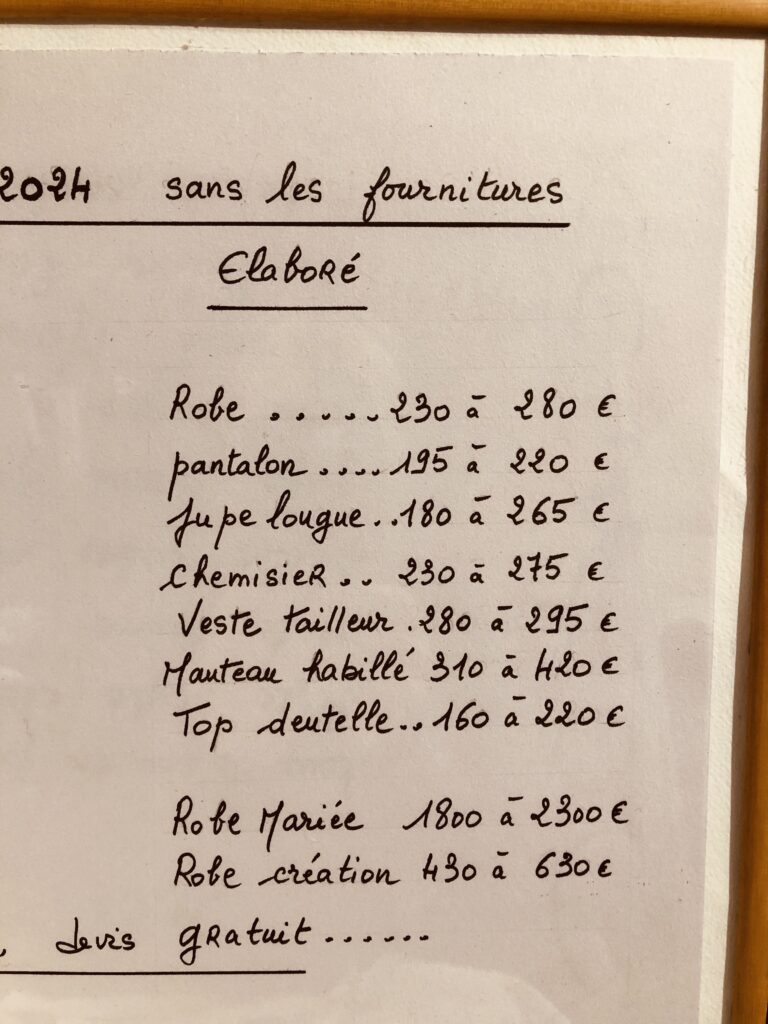 2024 sans les fournitures
Elaboré
Robe ..... 230 à 280 €
pantalon .... 195 à 220 €
Jupe longue .. 180 à 265 €
Chemisier .. 230 à 275 €
Veste tailleur . 280 à 295 €
Manteau habillé 310 à 420 €
Top dentelle .. 160 à 220 €
Robe Mariée 1800 à 2300 €
Robe création 430 à 630 €
devis gratuit ......